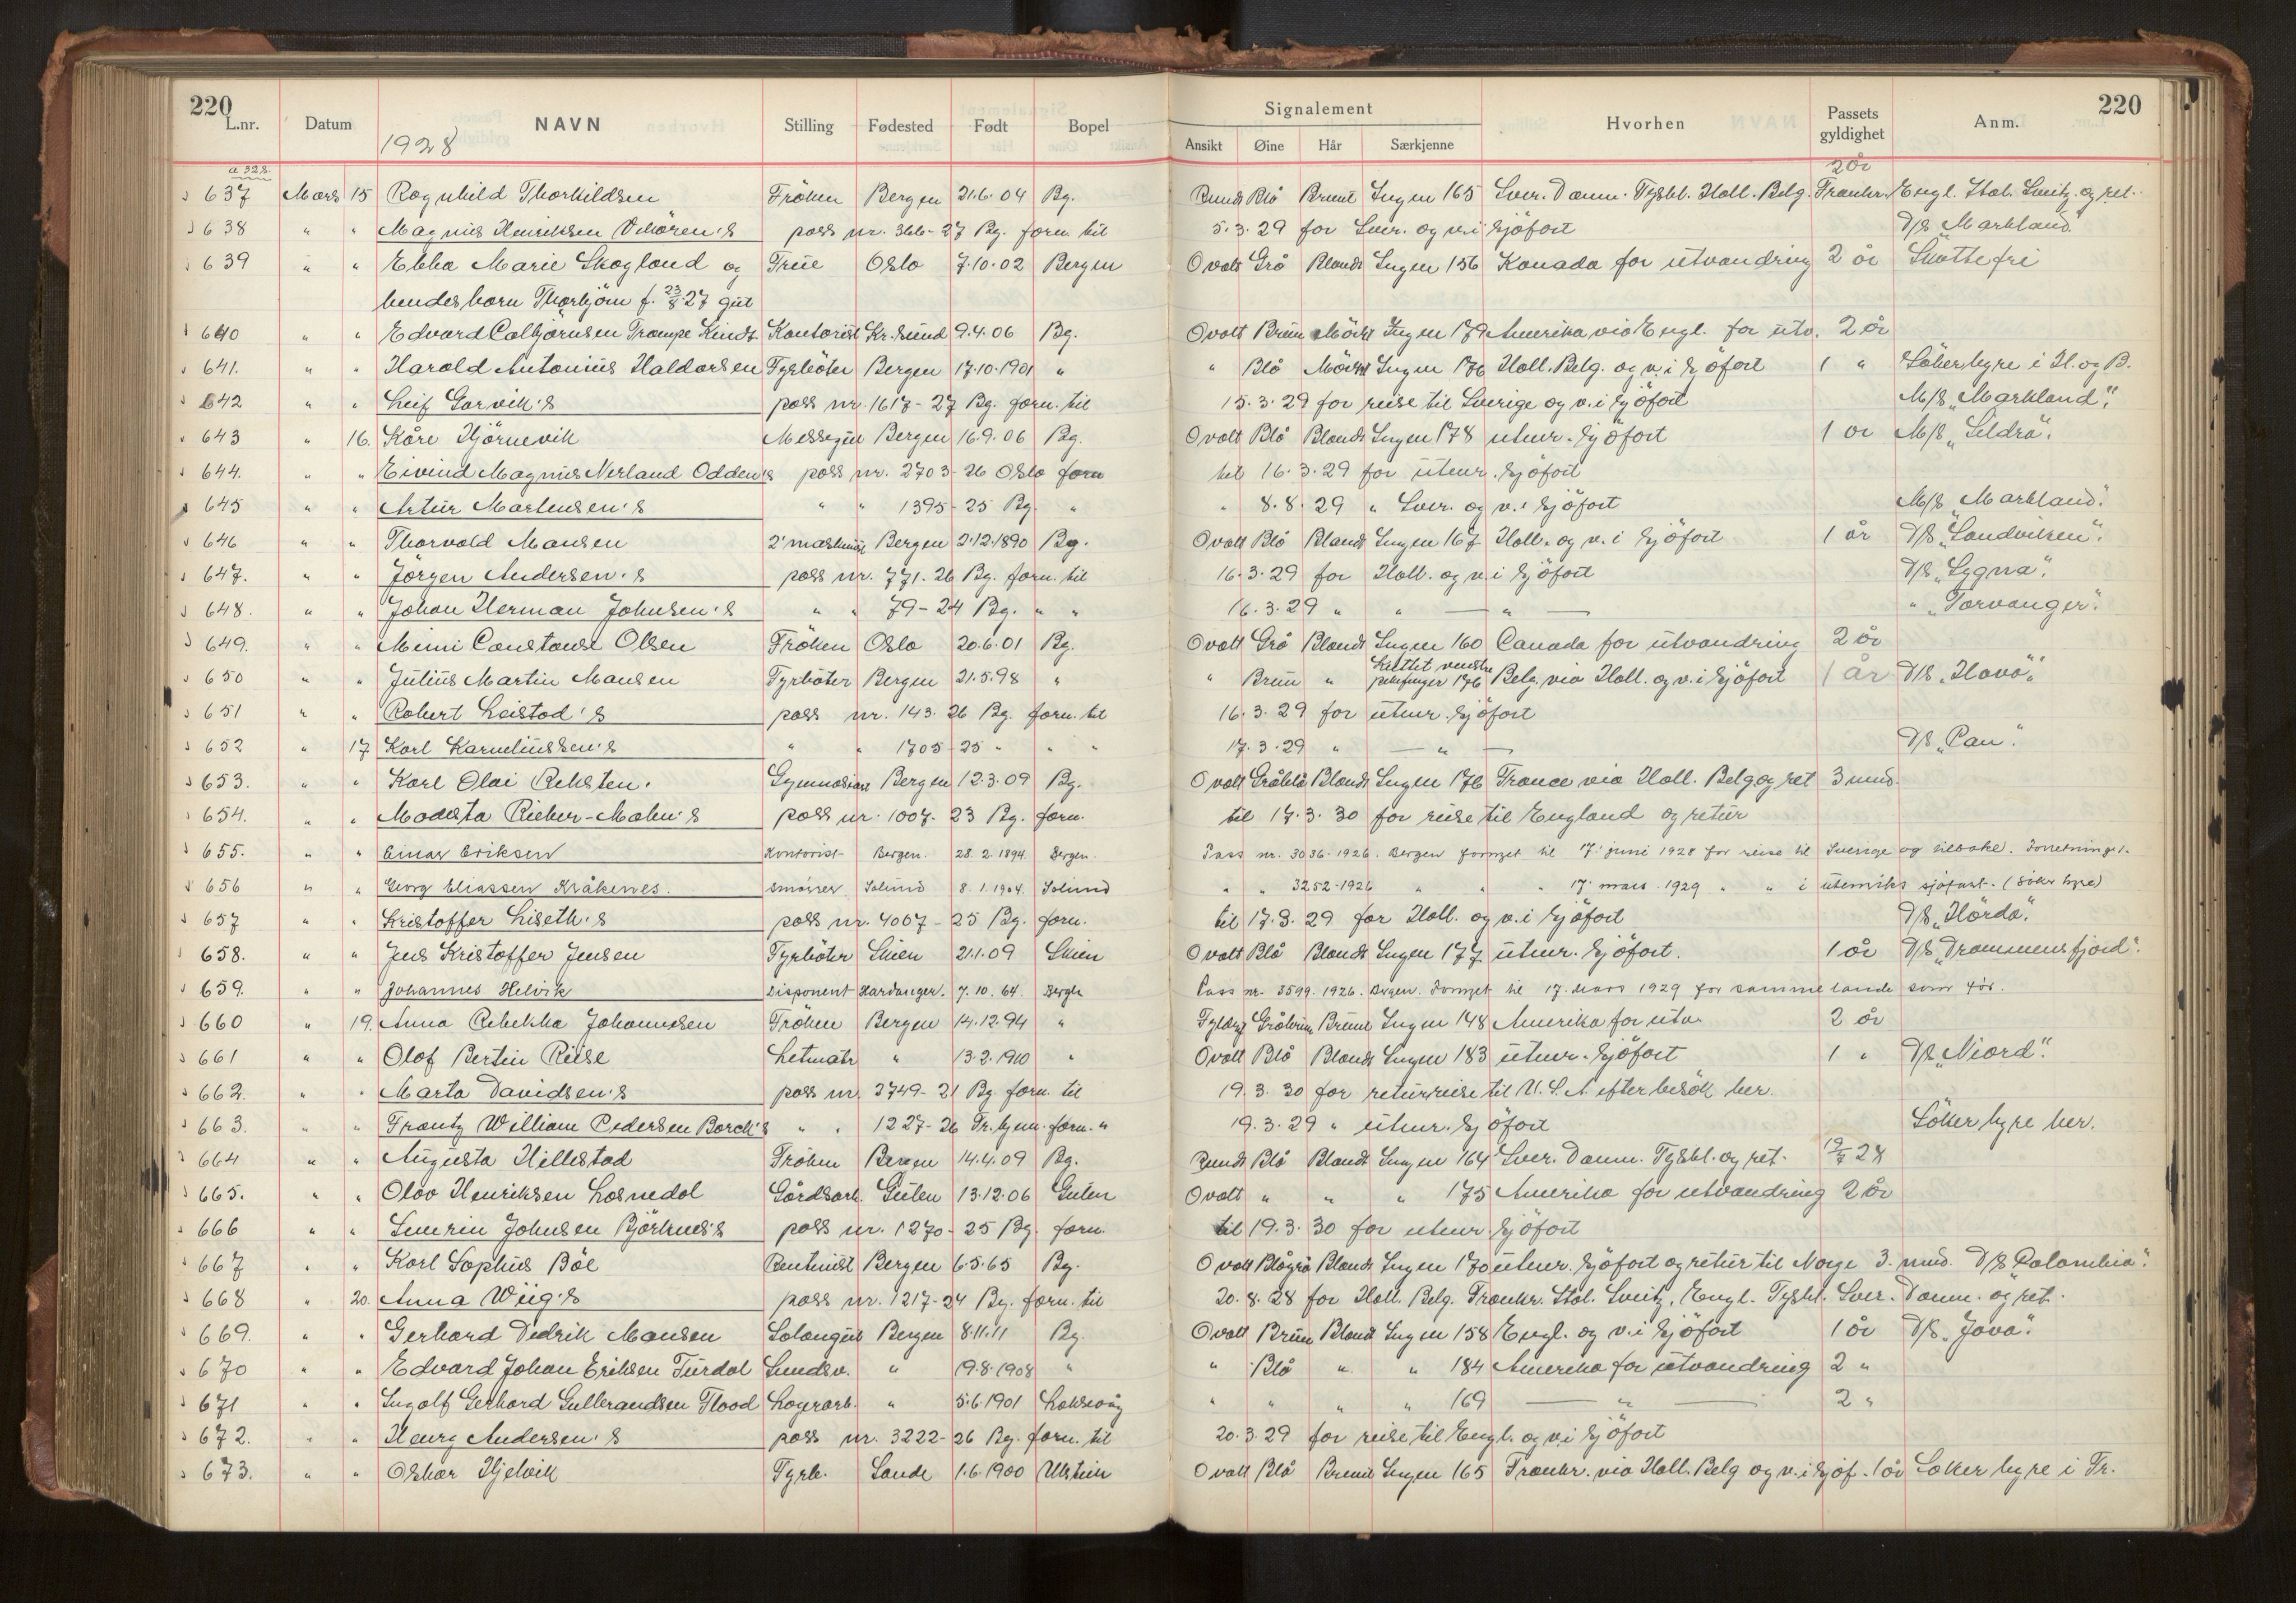 220 220
L.nr. Datum NAVN Stilling Fødested Født Bopel Signalement Hvorhen Passets gyldighet Anm.
Ansikt Øine Hår Særkjenne
1928
a 328. 2 år
637 Mars 15 Ragnhild Thorkildsen Fröken Bergen 21.6.04 Bg. Rundt Blå Brunt Ingen 165 Sver. Danm. Tyskl. Holl. Belg. Frankr. Engl. Ital. Sveitz. og ret.
638 " " Magnus Henriksen :s pass nr. 27 Bg. forn. til 5.3.29 for Sver. og v. i sjöfart D/S "Markland".
639 " " Ebba Marie Skogland og Frue Oslo 7.10.02 Bergen Ovalt Grå Blondt Ingen 156 Kanada for utvandring 2 år Skattefri
hendes barn Thorbjörn f. 23/8.27 gut
640 " " Edvard Colbjörnsen Trampe Kindt. Kontorist Kr.sund 9.4.06 Bg. Ovalt Brun Mörkt Ingen 179 Amerika via Engl. for utv. 2 år
641. " " Harald Antonius Haldorsen Fyrböter Bergen 17.10.1901 " " Blå Mörkt Ingen 176 Holl. Belg. og v. i sjöfart 1 " Söker hyre i H. og B.
642 " " Leif Garvik's pass nr. 1617-27 Bg. forn. til 15.3.29 for reise til Sverige og v. i sjöfart M/S "Markland".
643 " 16. Kåre Hjörnevik Messegut Bergen 16.9.06 Bg. Ovalt Blå Blondt Ingen 178 utenr. sjöfart 1 år M/S "Seldra".
644. " " Eivind Magnus Nerland Odden's pass nr. 2703-26 Oslo forn til 16.3.29 for utenr. sjöfart
645 " " Artur Martensen's " " 1395-25 Bg. " " 8.8.29 " Sver. og v. i sjöfart M/S "Markland".
646 " " Thorvald Mansen 2' maskinist Bergen 2.12.1890 Bg. Ovalt Blå Blondt Ingen 167 Holl. og v. i sjöfart 1 år D/S "Sandviken".
647. " " Jörgen Andersen's pass nr. 771-26 Bg. forn. til 16.3.29 for Holl. og v. i sjöfart D/S "Lygna".
648. " " Johan Herman Johnsen's " " 79-24 Bg. " " 16.3.29 " " — " — " "Torvanger".
649. " " Mimi Constanse Olsen Fröken Oslo 20.6.01 Bg. Ovalt Grå Blondt Ingen 160 Canada for utvandring 2 år
650 " " Julius Martin Mansen Fyrböter Bergen 21.5.98 " " Brun " venstre pekefinger 176 Belg. via Holl. og v. i sjöfart 1 år D/S "Havö".
651 " " Robert Leistad's pass nr. 143-26 Bg. forn. til 16.3.29 for utenr. sjöfart
652 " 17 Karl Karneliussen's " " 1705-25 " " " 17.3.29 " — " — D/S "Pan".
653. " " Karl Olai Reksten. Gymnasiast Bergen 12.3.09 Bg. Ovalt Gråblå Blondt Ingen 176 France via Holl. Belg og ret 3 mnd.
654. " " Modesta Rieber-Mohn's pass nr. 1007-23 Bg. forn. til 17.3.30 for reise til England og retur
655. " " Einar Eriksen Kontorist Bergen. 28.2.1894. Bergen. Pass nr. 3036-1926. Bergen fornyet til 17. juni 1928 for reise til Sverige og tilbake. Forretnings.
656 " " Georg Eliassen Kråkenes. smörer Solund 8.1.1904. Solund " " 3252-1926 " " " 17. mars 1929 " " i utenriks sjöfart. (söker hyre)
657 " " Kristoffer Liseth's pass nr. 4067-25 Bg. forn. til 17.3.29 for Holl. og v. i sjöfart D/S "Hörda".
658. " " Jens Kristoffer Jensen Fyrböter Skien 21.1.09 Skien Ovalt Blå Blondt Ingen 177 utenr. sjöfart. 1 år D/S "Drammensfjord".
659. " " Johannes Helvik Disponent Hardanger. 7.10.64. Bergen Pass nr. 3599-1926. Bergen. Fornyet til 17. mars 1929 for samme lande som för.
660 " 19. Anna Rebekka Johannesen Fröken Bergen 14.12.94 " Fyldigt Gråbrun Brunt Ingen 148 Amerika for utv. 2 år
661 " " Olaf Bertin Riise Letmatr " 13.2.1910 " Ovalt Blå Blondt Ingen 183 utenr. sjöfart 1 " D/S "Njord".
662. " " Marta Davidsen's pass nr. 3749-21 Bg. forn. til 19.3.30 for returreise til U.S.A. efter besök her.
663. " " Frantz William Pedersen Borck's " " 1227-26 Tr.hjem. forn. " 19.3.29 " utenr. sjöfart Söker hyre her.
664 " " Augusta Hillestad Fröken Bergen 14.4.09 Bg. Rundt Blå Blondt Ingen 164 Sver. Danm. Tyskl. og ret. 19/7 28
665. " " Olav Henriksen Losnedal Gårdsarb. Gulen 13.12.06 Gulen Ovalt " " " 175 Amerika for utvandring 2 år
666 " " Severin Johnsen Björknes's pass nr. 1270-25 Bg. forn. til 19.3.30 for utenr. sjöfart
667 " " Karl Sophus Böe Rentenist Bergen 6.5.65 Bg. Ovalt Blågrå Blondt Ingen 170 utenr. sjöfart og retur til Norge 3. mnd. D/S "Colombia".
668 " 20. Anna Wiig's pass nr. 1217-24 Bg. forn. til 20.8.28 for Holl. Belg. Frankr. Ital. Sveitz. Engl. Tyskl. Sver. Danm. og ret.
669. " " Gerhard Didrik Mansen Salongut Bergen 8.11.11 Bg. Ovalt Brun Blondt Ingen 158 Engl. og v. i sjöfart 1 år D/S "Java".
670 " " Edvard Johan Eriksen Furdal " 19.8.1908 " " Blå " " 184 Amerika for utvandring 2 "
671 " " Ingolf Gerhard Gulbrandsen Flood Lagerarb. " 5.6.1901 Laksevåg " " " " 169 — " — 2 "
672. " " Henry Andersen's pass nr. 3222-26 Bg. forn. til 20.3.29 for reise til Engl. og v. i sjöfart
673. " " Oskar Hjelvik Fyrb. Sande 1.6.1900 Ulstein Ovalt Blå Brunt Ingen 165 Frankr. via Holl. Belg og v. i sjöf. 1 år Söker hyre i Fr.